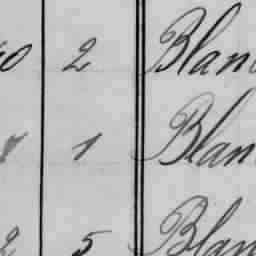 0 2 Blan
1 Blan
2 5 Blan